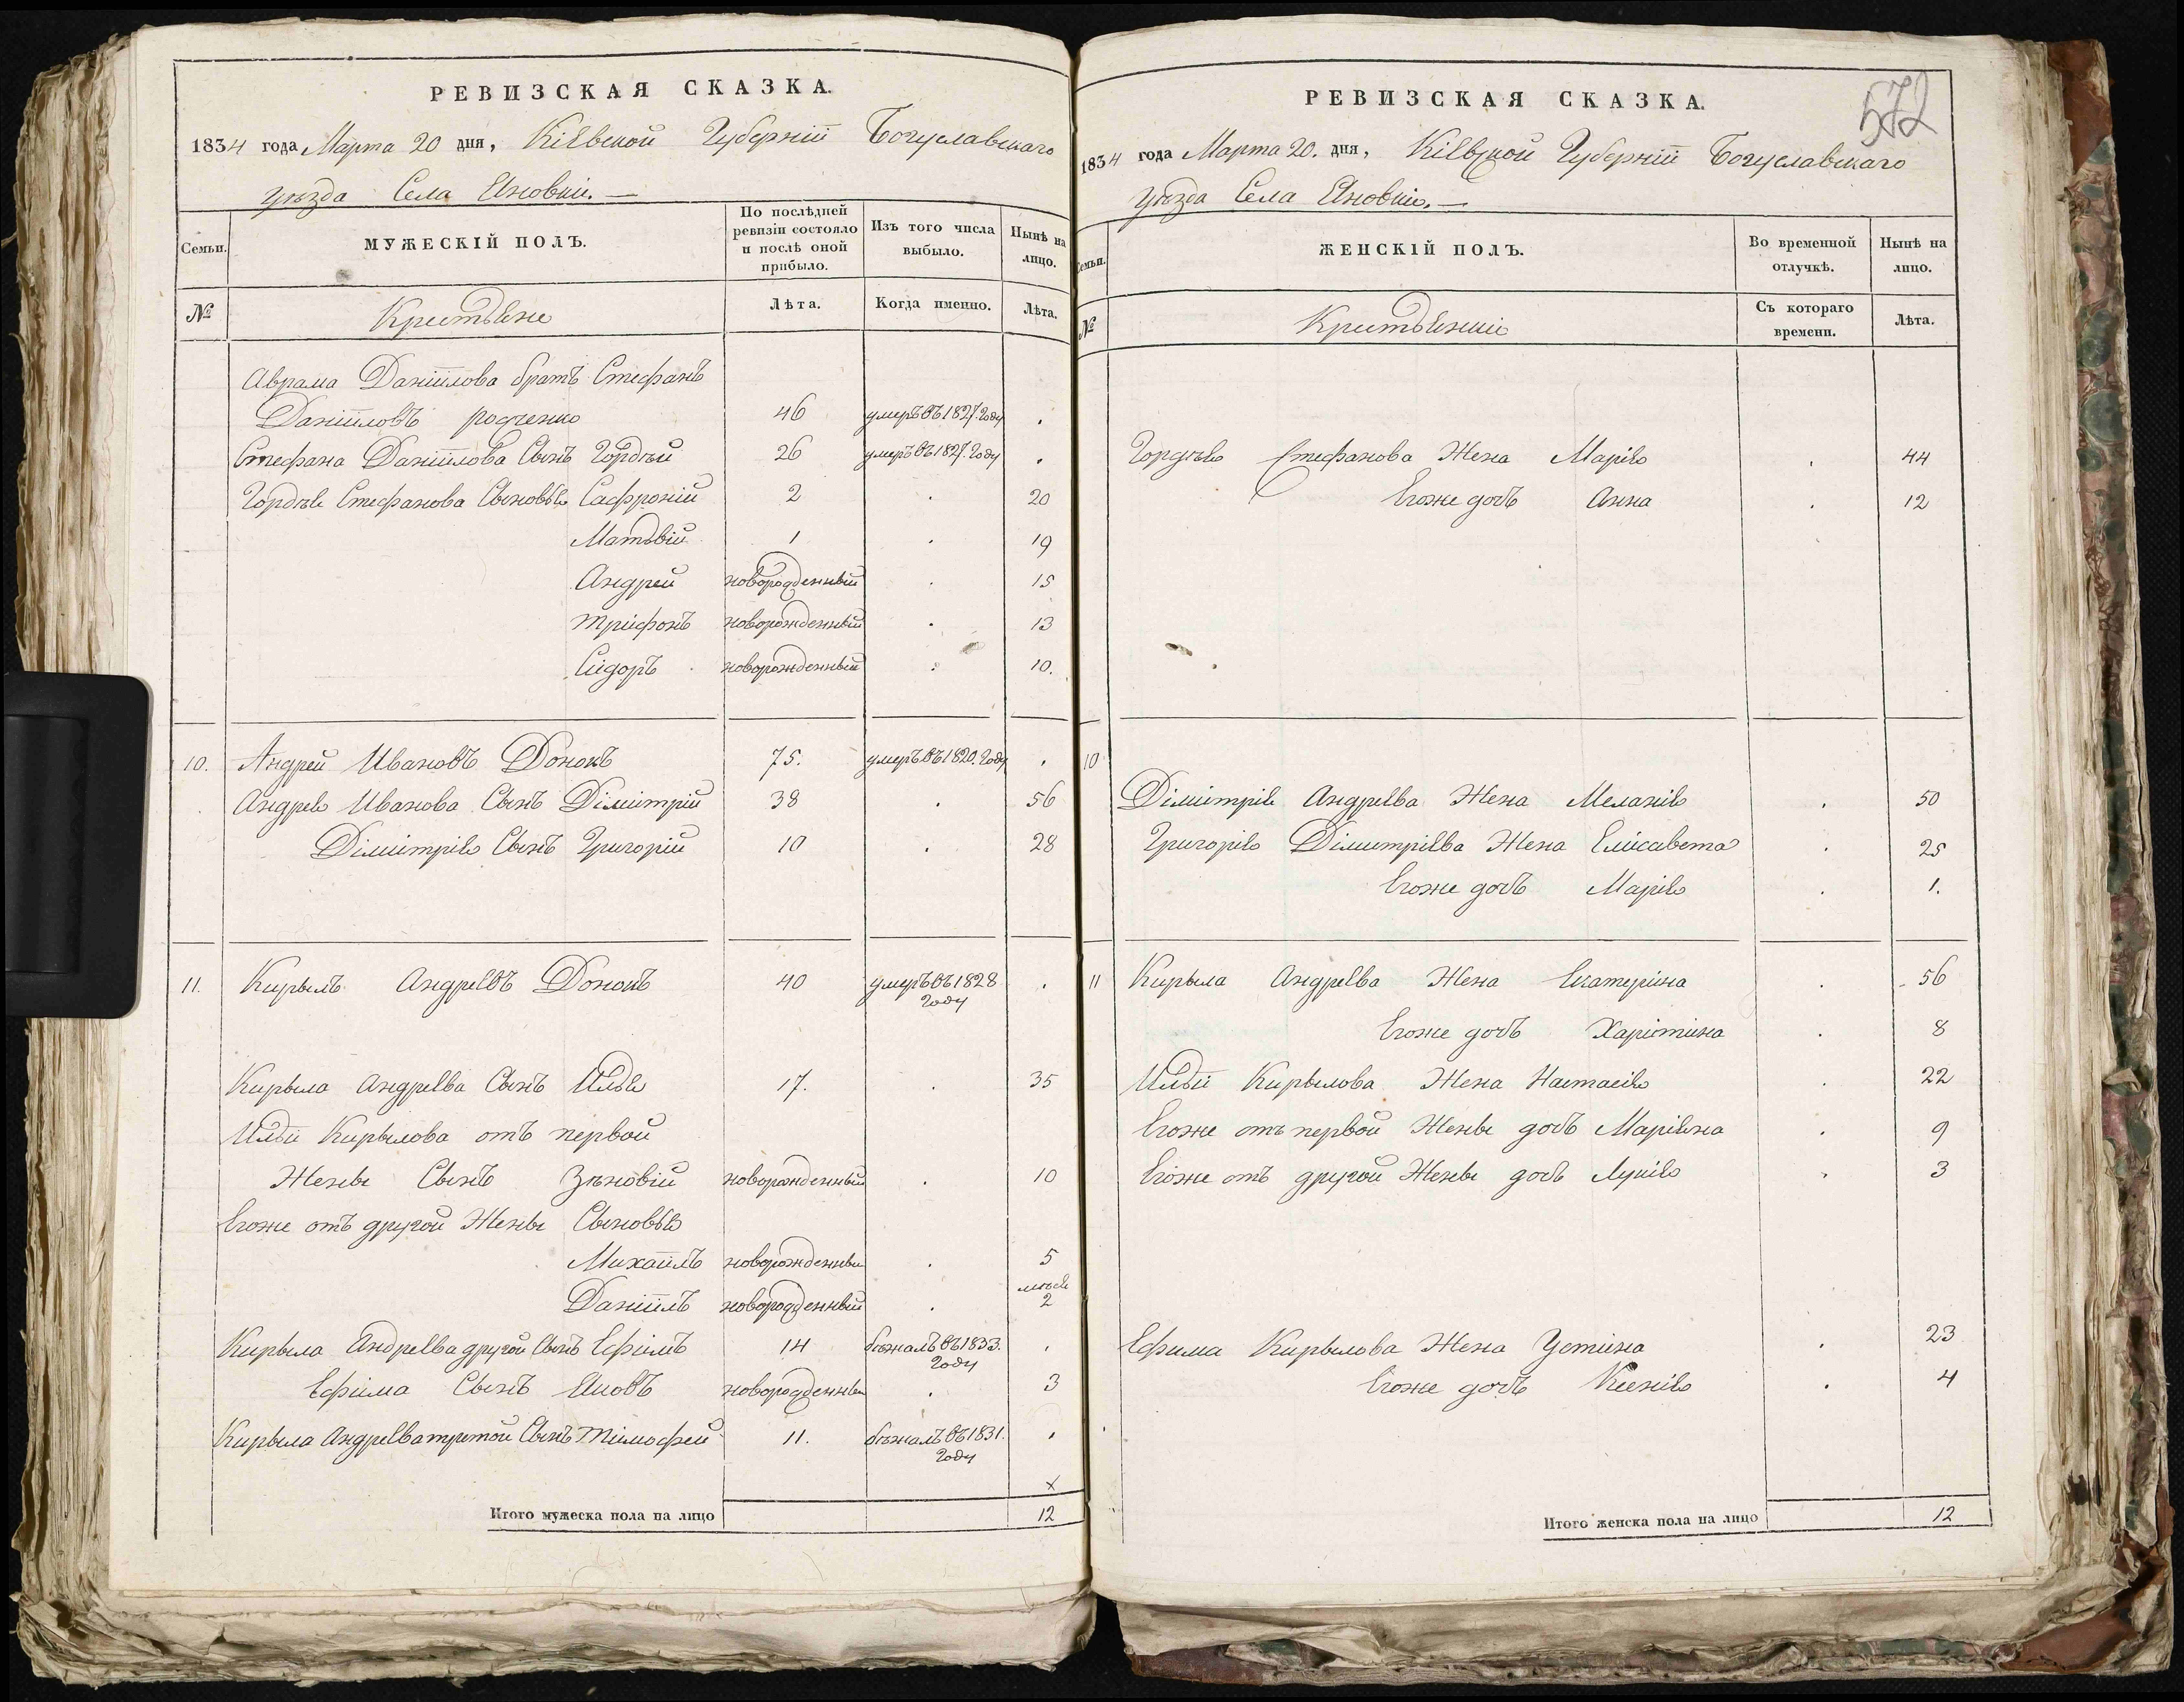 РЕВИЗСКАЯ СКАЗКА.
1834 года Марта 20 дня, Кіевской Губерніи Богуславскаго
уѣзда Села Яновки. —
Семьи.
МУЖЕСКІЙ ПОЛЪ.
По послѣдней ревизіи состояло и послѣ оной прибыло.
Изъ того числа выбыло.
Нынѣ на лицо.
№
Крестьяне
Лѣта.
Когда именно.
Лѣта.
Аврама Даніилова братъ Стефанъ
Даніиловъ 46 умеръ въ 1827. году .
Стефана Даніилова Сынъ Гордѣй 26 умеръ въ 1827. году .
Гордѣя Стефанова Сыновья Сафроній 2 . 20
Матвій 1 . 19
Андрей новорожденный . 15
Трифонъ новорожденный . 13
Сидоръ новорожденный . 10.
10. Андрей Ивановъ Донокъ 75. умеръ въ 1820. году .
Андрея Иванова Сынъ Дімитрій 38 . 56
Дімитрія Сынъ Григорій 10 . 28
11. Кирылъ Андреевъ Донокъ 40 умеръ въ 1828 году .
Кирыла Андреева Сынъ Илья 17. . 35
Ильи Кирылова отъ первой
Жены Сынъ Зѣновій новорожденный . 10
Егоже отъ другой Жены Сыновья
Михаилъ новорожденный . 5
Даніилъ новорожденный . 2
Кирыла Андреева другой Сынъ Ефимъ 14 бѣжалъ въ 1833. году .
Ефима Сынъ Яковъ новорожденный . 3
Кирыла Андреева третой Сынъ Тимофей 11. бѣжалъ въ 1831. году .
х
Итого мужеска пола на лицо 12
572
РЕВИЗСКАЯ СКАЗКА.
1834 года Марта 20. дня, Кіевской Губерніи Богуславскаго
уѣзда Села Яновки. —
Семьи.
ЖЕНСКІЙ ПОЛЪ.
Во временной отлучкѣ.
Нынѣ на лицо.
№
Крестьянки
Съ котораго времени.
Лѣта.
Гордѣя Стефанова Жена Марія . 44
Егоже дочь Анна . 12
10
Дімитрія Андреева Жена Меланія . 50
Григорія Дімитріева Жена Елисавета . 25
Егоже дочь Марія . 1.
11 Кирыла Андреева Жена Екатерина . 56
Егоже дочь Харитина . 8
Ильи Кирылова Жена Настасія . 22
Егоже отъ первой Жены дочь Маріяна . 9
Егоже отъ другой Жены дочь Лукія . 3
Ефима Кирылова Жена Устина . 23
Егоже дочь Ксенія . 4
Итого женска пола на лицо 12